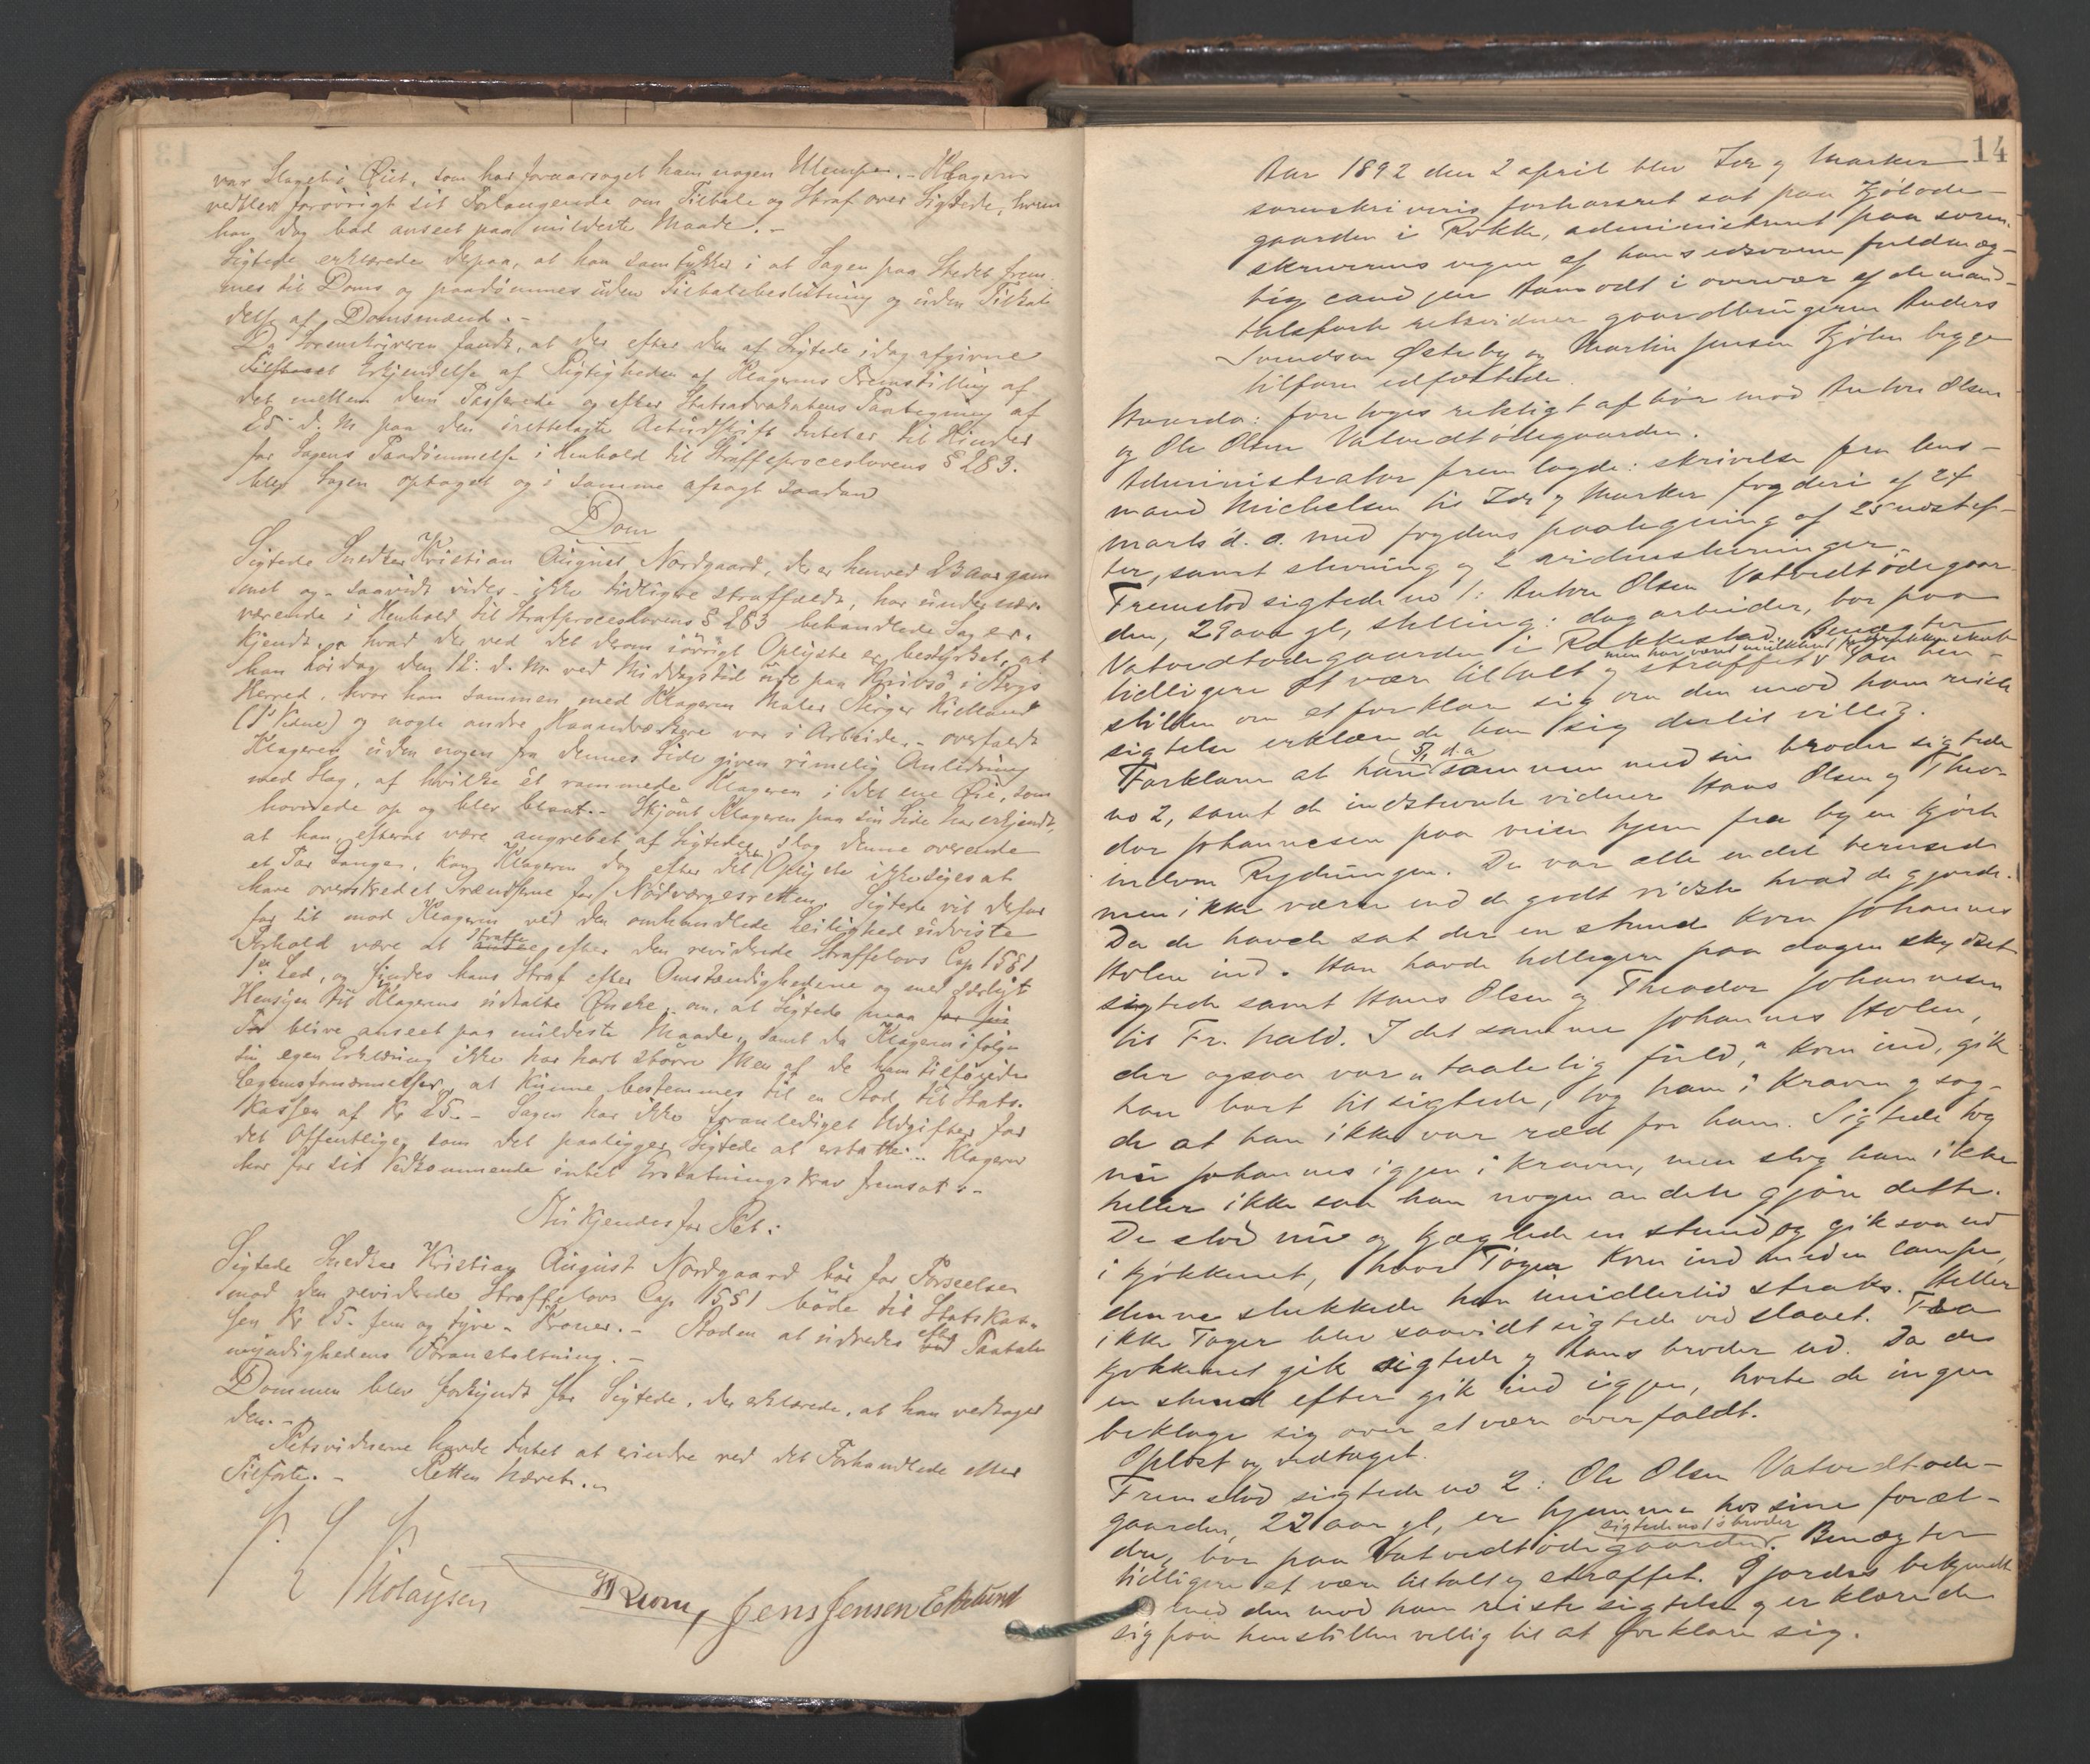 var Slaget i Øiet, som har foraarsaget ham nogen Ulempe. - Klageren
vedblev forøvrigt sit Forlangende om Tiltale og Straf over Sigtede, hvem
han dog bad anseet paa mildeste Maade. -
Sigtede erklærede derpaa, at han samtykker i at Sagen paa Stedet frem-
mes til Doms og paadømmes uden Tiltalebeslutning og uden Tilkal
delse af Domsmænd. -
Da Sorenskriveren fandt, at der efter den af Sigtede idag afgivne
Tilstaaelse Erkjendelse af Rigtigheden af Klagerens Fremstilling af
det mellem dem Passerede og efter Statsadvokatens Paategning af
25 d. M paa den irettelagte Actudskrift Intet er til Hinder
for Sagens Paadømmelse i Henhold til Straffeproceslovens § 283.
blev Sagen optaget og i samme afsagt saadan
Dom
Sigtede Snedker Kristian August Nordgaard, der er henved 23 Aar gam
mel og - saavidt vides - ikke tidligere straffældt, har under nær-
værende i Henhold til Strafproceslovens § 283 behandlede Sag er-
kjendt, hvad der ved det derom iøvrigt Oplyste er bestyrket, at
han Lørdag den 12. d. M. ved Middagstid ude paa i Bergs
Herred, hvor han sammen med Klageren Maler Birger Kielland
(1ste Vidne) og nogle andre Haandværkere var i Arbeide, - overfaldt
Klageren uden nogen fra dennes Side given rimelig Anledning
med Slag, af hvilke et rammede Klageren i det ene Øie, som
hovnede op og blev blaat. - Skjønt Klageren paa sin Side har erkjendt,
at han, efterat være angrebet af Sigtede, slog denne overende
et Par Gange, kan Klageren dog efter det Oplyste ikke siges at
have overskredet Grændserne for Nødværgesretten. Sigtede vil derfor
for sit mod Klageren ved den omhandlede Leilighed udviste
Forhold være at straffe efter den reviderede Straffelovs Cap 15 § 1
1ste Led, og findes hans Straf efter Omstændighederne og med særligt
Hensyn til Klagerens udtalte Ønske om, at Sigtede maa
blive anseet paa mildeste Maade, samt da Klageren ifølge
sin egen Erklæring ikke har havt større Men af de ham tilføiede
Legemsfornærmelser, at kunne bestemmes til en Bod til Stats-
kassen af Kr 25. - Sagen har ikke foranlediget Udgifter for
det Offentlige, som det paaligger Sigtede at erstatte. Klageren
har for sit Vedkommende intet Erstatningskrav fremsat. -
Thi kjendes for Ret:
Sigtede Snedker Kristian August Nordgaard bør for Forseelse
mod den reviderede Straffelovs Cap 15 § 1 bøde til Statskas-
sen Kr 25 - fem og tyve - Kroner. - Boden at udredes efter Paatale
myndighedens Foranstaltning. -
Dommen blev forkyndt for Sigtede, der erklærede, at han vedtager
den. -
Retsvidnerne havde Intet at erindre ved det Forhandlede eller
Tilførte. - Retten hævet. -
Jens Jensen Eklund
14
Aar 1892 den 2 april blev Idd og Marker
sorenskriveris forhørsret sat paa Fjøløde-
gaarden i Rokke, administreret paa soren-
skriverens vegne af hans edsvorne fuldmæg-
tig cand jur Aamodt i overvær af de mand-
talsførte retsvidner gaardbrugerne Anders
Svendsen Østeby og Martin Jensen Fjølen begge
tilforn edfæstede.
Hvorda: foretoges retsligt afhør mod Anton Olsen
og Ole Olsen Vatvedtødegaarden.
Administrator fremlagde: skrivelse fra lens-
mand Michelsen til Idd og Marker fogderi af 24
marts d. a. med fogdens paategning af 25 næstef-
ter, samt stevning og 2 vidnestevninger.
Fremstod sigtede no 1: Anton Olsen Vatvedtødegaar-
den, 29 aar gl, stilling: dagarbeider, bor paa
Vatvedtødegaarden i Rakkestad. Benægter
tidligere at være tiltalt og straffet. Paa hen-
stillen om at forklare sig om den mod ham reiste
sigtelse erklærede han sig dertil villig.
Forklarer at han 5/1 d. a sammen med sin broder sigtede
no 2, samt de indstevnte vidner Hans Olsen og Theo-
dor Johannesen paa veien hjem fra byen kjørte
indom Rydningen. De var alle endel berusede
men ikke værre end de godt vidste hvad de gjorde.
Da de havde sat der en stund kom Johannes
Holen ind. Han havde tidligere paa dagen skydset
sigtede samt Hans Olsen og Theodor Johannesen
til Fr. hald. I det samme Johannes Holen,
der ogsaa var "taalelig fuld," kom ind, gik
han bort til sigtede, tog ham i kraven og sag-
de at han ikke var ræd for ham. Sigtede tog
nu Johannes igjen i kraven, men slog ham ikke
heller ikke saa han nogen andete gjøre dette.
De stod nu og kjæglede en stund og gik saa ud
i kjøkkenet, hvor Tøger kom ind med en lampe,
denne slukkede han imidlertid straks. Heller
ikke Tøger blev saavidt sigtede ved slaaet. Fra
kjøkkenet gik sigtede og hans broder ud. Da de
en stund efter gik ind igjen, hørte de ingen
beklage sig over at være overfaldt.
Oplæst og vedtaget.
Fremstod sigtede no 2: Ole Olsen Vatvedtøde-
gaarden, 22 aar gl, er hjemme hos sine foræl-
dre, bor paa Vatvedtødegaarden. sigtede no 1's broder Benægter
tidligere at være tiltalt og straffet. Gjordes bekjendt
med den mod ham reiste sigtelse og erklærede
sig paa henstillen villig til at forklare sig.